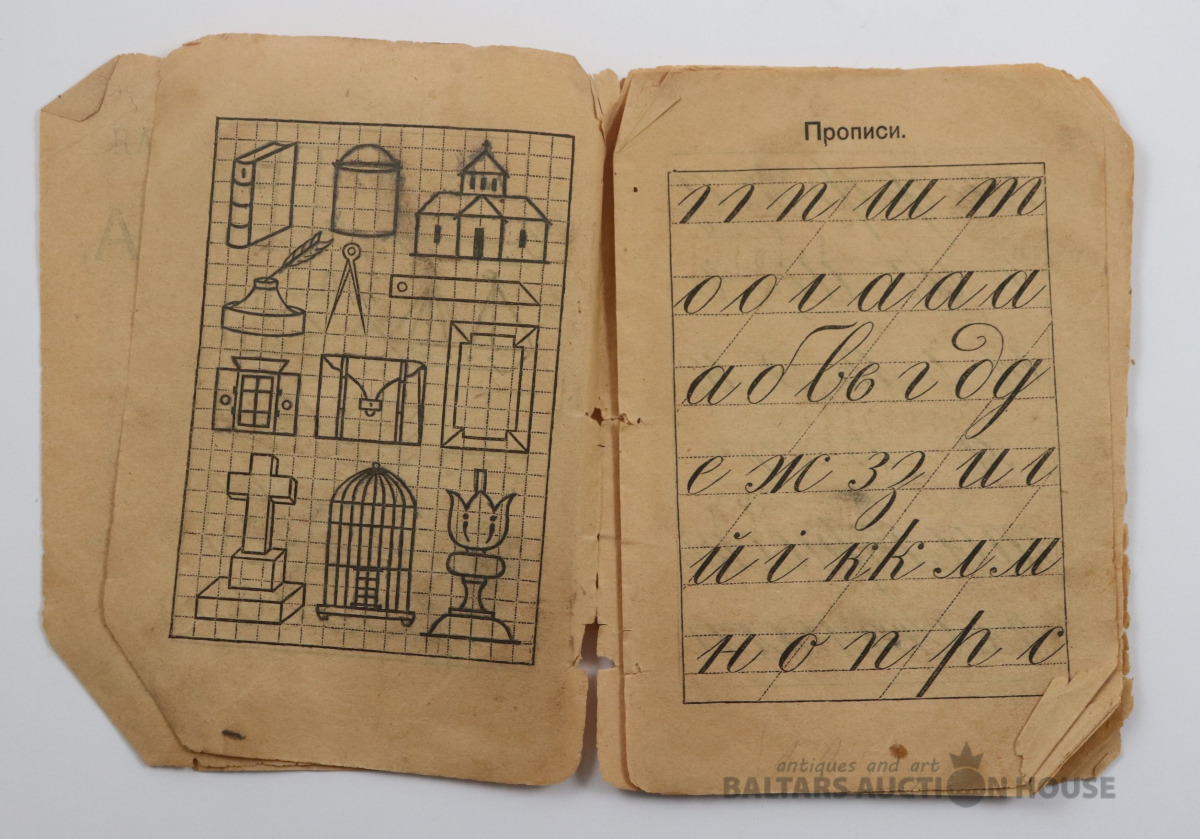 Прописи.
г г п ш т
о о г а а а
а б в в г д д
е ж з з и г
й і к к л м
н о п р с
antiques and art
BALTARS AUCTION HOUSE